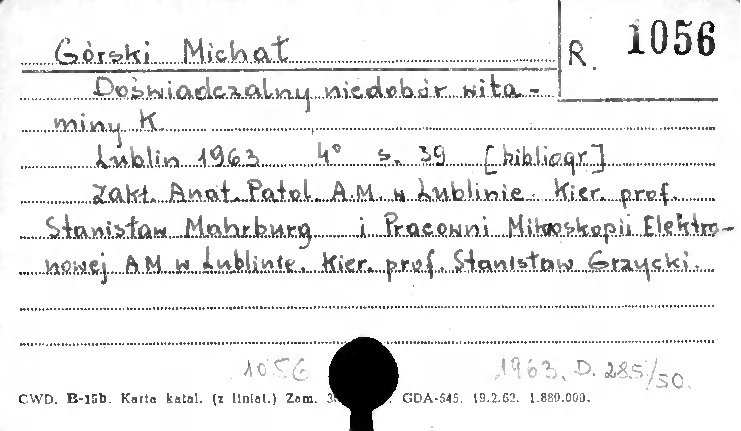 Górski Michał
R. 1056
Doświadczalny niedobór wita-
miny K
Lublin 1963 4° s. 39 [bibliogr.]
Zakł. Anat. Patol. A.M. w Lublinie. Kier. prof.
Stanisław Mahrburg i Pracowni Mikroskopii Elektro-
nowej AM w Lublinie. Kier. prof. Stanisław Grzycki.
1056 1963. D. 285/50.
CWD. B-15b. Karta katal. (z liniat.) Zam. GDA-545. 19.2.62. 1.880.000.